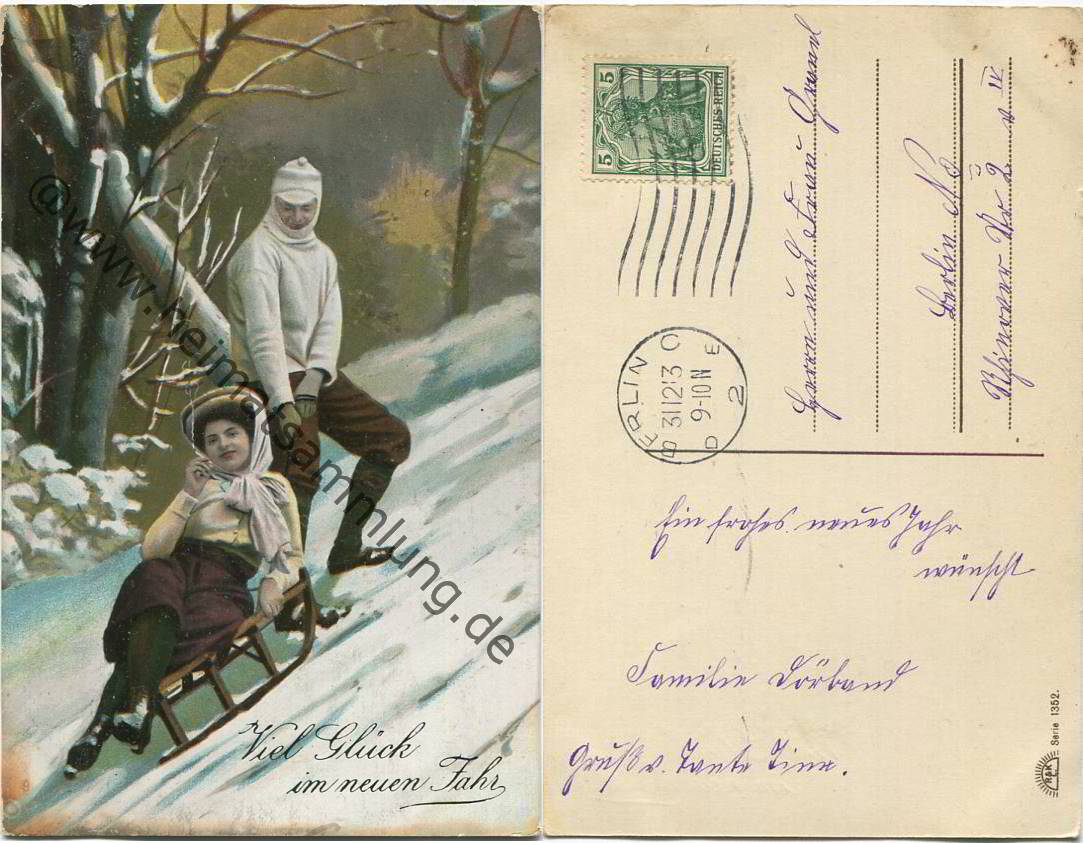 @www.heimatsammlung.de
Viel Glück
im neuen Jahr
5
5
DEUTSCHES REICH
BERLIN C
31.12.13
9-10N
D 2 E
Herrn und Frau
Berlin No
Nr 2 v IV
Ein frohes neues Jahr
wünscht
Familie Dörband
Gruß v. Tante Tine.
R&K
Serie 1352.